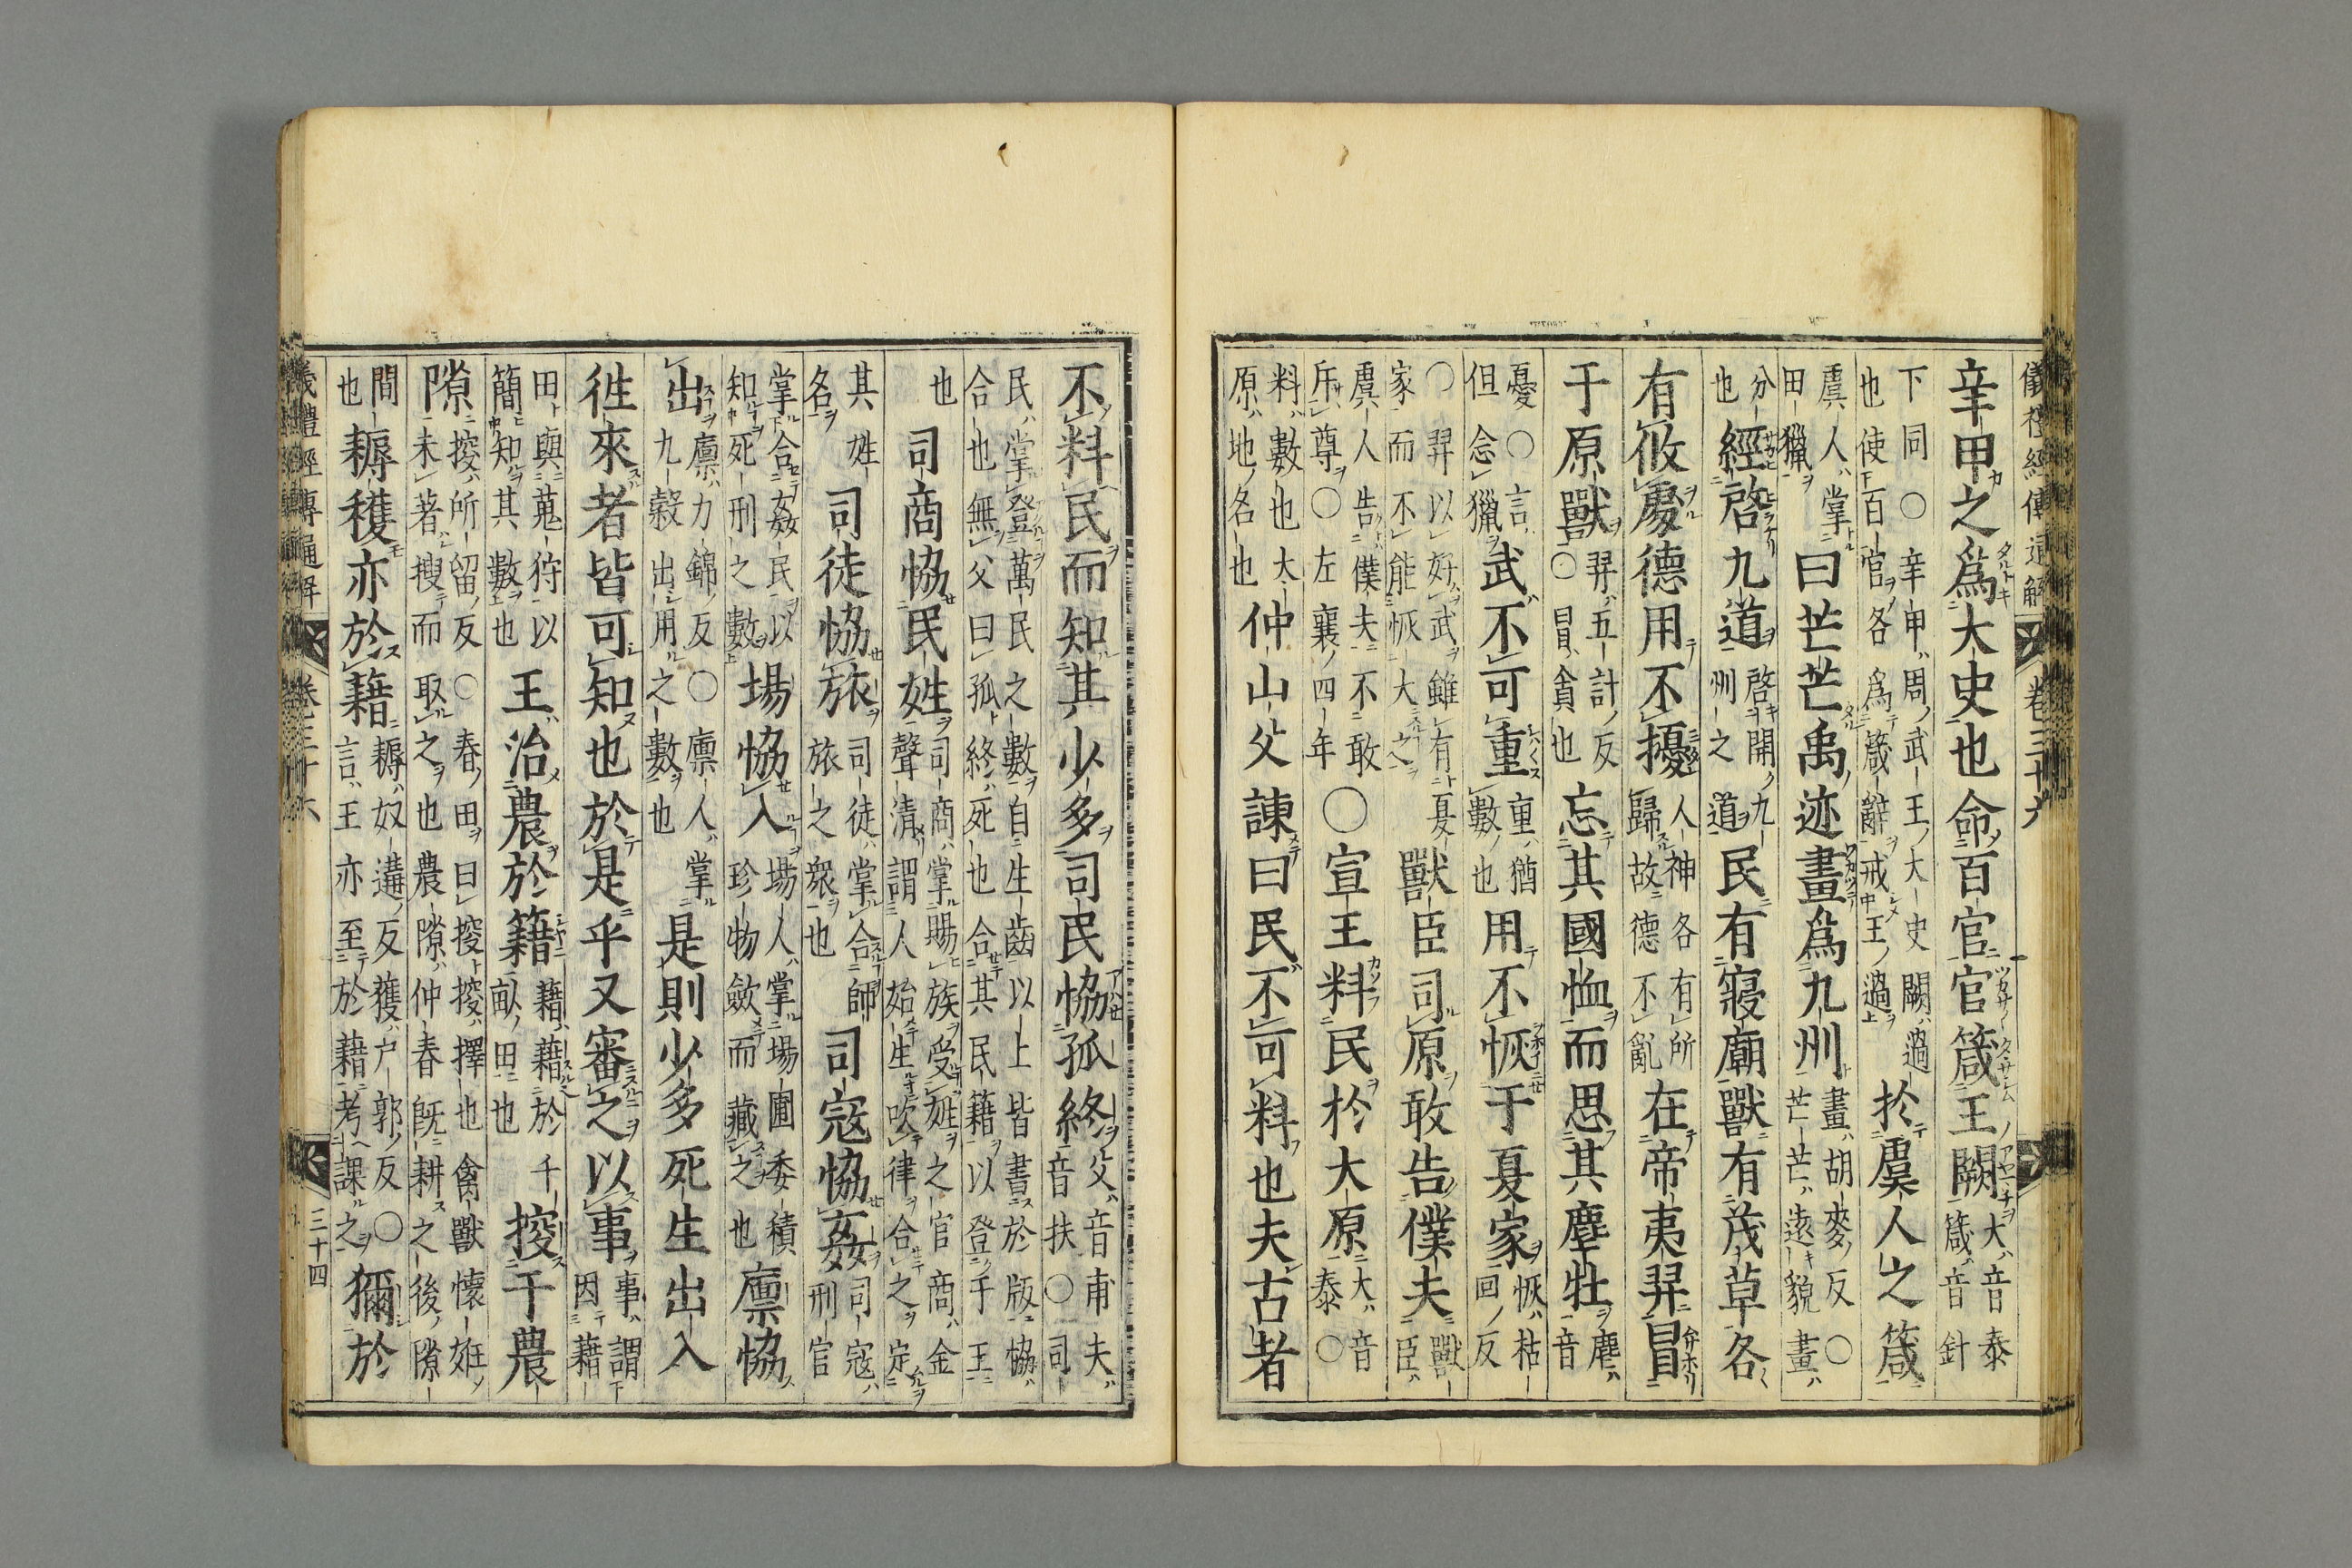 儀禮經傳通解 卷三十六
辛甲之爲大史也命百官官箴王闕大音泰箴音針
下同〇辛申周武王大史闕過也使百官各爲箴辭戒王過於虞人之箴
虞人掌田獵曰芒芒禹迹畫爲九州畫胡麥反〇芒芒遠貌畫
分也經啓九道啓開九州之道民有寢廟獸有茂草各
有攸處德用不擾人神各有所歸故德不亂在帝夷羿冒
于原獸羿五計反〇冒貪也忘其國恤而思其麀牡麀音
憂〇言但念獵武不可重重猶數也用不恢于夏家恢枯回反
〇羿以好武雖有夏家而不能恢大之獸臣司原敢告僕夫獸臣
虞人告僕夫不敢斥尊〇左襄四年〇宣王料民於大原大音泰〇
料數也大原地名也仲山父諫曰民不可料也夫古者
不料民而知其少多司民協孤終父音甫夫音扶〇司
民掌登萬民之數自生齒以上皆書於版協合也無父曰孤終死也合其民籍以登于王
也司商協民姓司商掌賜族受姓之官商金聲清謂人始生吹律合之定
其姓名司徒協旅司徒掌合師旅之衆也司寇協姦司寇刑官
掌合姦民以知死刑之數場協入場人掌場圃委積珍物斂而藏之也廩協
出廩力錦反〇廩人掌九穀出用之數也是則少多死生出入
徃來者皆可知也於是乎又審之以事事謂因藉
田與蒐狩以簡知其數也王治農於籍藉藉於千畝田也搜于農
隙搜所留反〇春田曰搜搜擇也禽獸懷姙未著搜而取之也農隙仲春旣耕之後隙
間也耨穫亦於藉耨奴遘反穫户郭反〇言王亦至於藉考課之獮於
義禮經傳通解 卷三十六 三十四